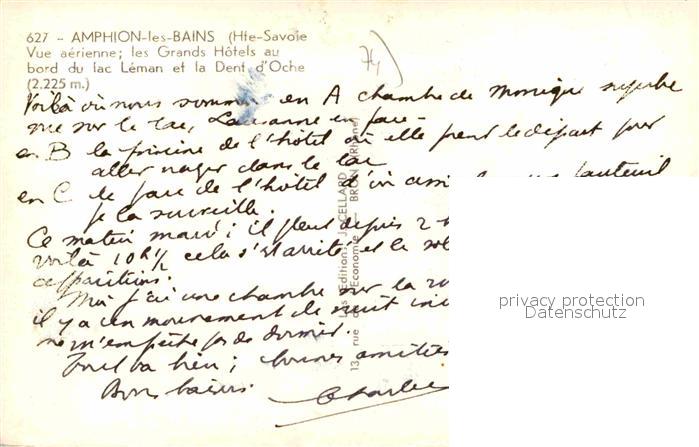 627 - AMPHION-les-BAINS (Hte-Savoie
Vue aérienne; les Grands Hôtels au
bord du lac Léman et la Dent d'Oche
(2.225 m.)
74)
Voilà où nous sommes en A chambre de Monique superbe
vue sur le lac, Lausanne en face -
en B la piscine de l'hôtel où elle prend le départ pour
aller nager dans le lac
en C le parc de l'hôtel d'où assi fauteuil
je la surveille.
Ce matin mardi il pleut depuis 2
voilà 10h½ cela s'est arrêté et le sol
apparitions.
Moi j'ai une chambre sur la
il y a un mouvement de nuit
ne m'empêche pas de dormir.
Tout va bien; bonnes amitiés
Bons baisers.
Charles
Les Editions J. CELLARD
13, rue de l'Economie — BRON (Rhône)
privacy protection
Datenschutz